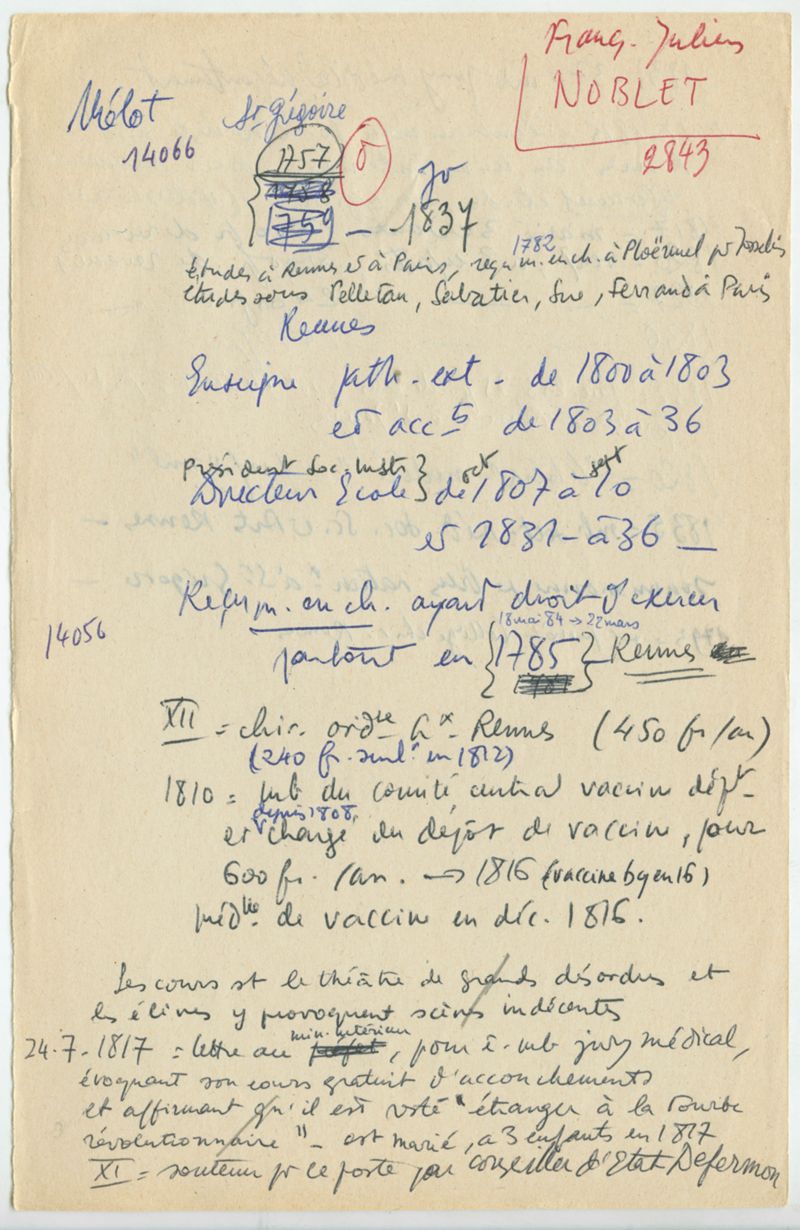 Franç. Julien
NOBLET
2843
Mélot St Grégoire
14066
1757 δ
1758
1759 — 1837
études à Rennes et à Paris, reçu 1782 m. en ch. à Ploërmel pr Josselin
études sous Pelletan, Sabatier, Sue, Ferrand à Paris
Rennes
Enseigne path. ext. de 1800 à 1803
et acc ts de 1803 à 36
président Soc. Instr
Directeur Ecole } de oct 1807 à sept 10
et 1831 – à 36 —
Reçu m. en ch. ayant droit d'exercer
18 mai 84 → 22 mars
14056
partout en { 1785 } Rennes
XII = chir. ordre hx Rennes (450 fr/an)
(240 fr. seult en 1812)
1810 = mb du comité central vaccine dépt
depuis 1808
et chargé du dépôt de vaccine, pour
600 fr. /an. → 1816 (vaccine bg en 16)
méd lle de vaccine en déc. 1816.
Les cours st le théâtre de grands désordres et
les élèves y provoquent scènes indécentes
24.7.1817 = lettre au préfet min. intérieur, pour ê. mb jury médical,
évoquant son cours gratuit d'accouchements
et affirmant qu'il est resté "étranger à la tourbe
révolutionnaire" – est marié, a 3 enfants en 1817
XI = soutenu pr ce poste par conseiller d'Etat Defermon